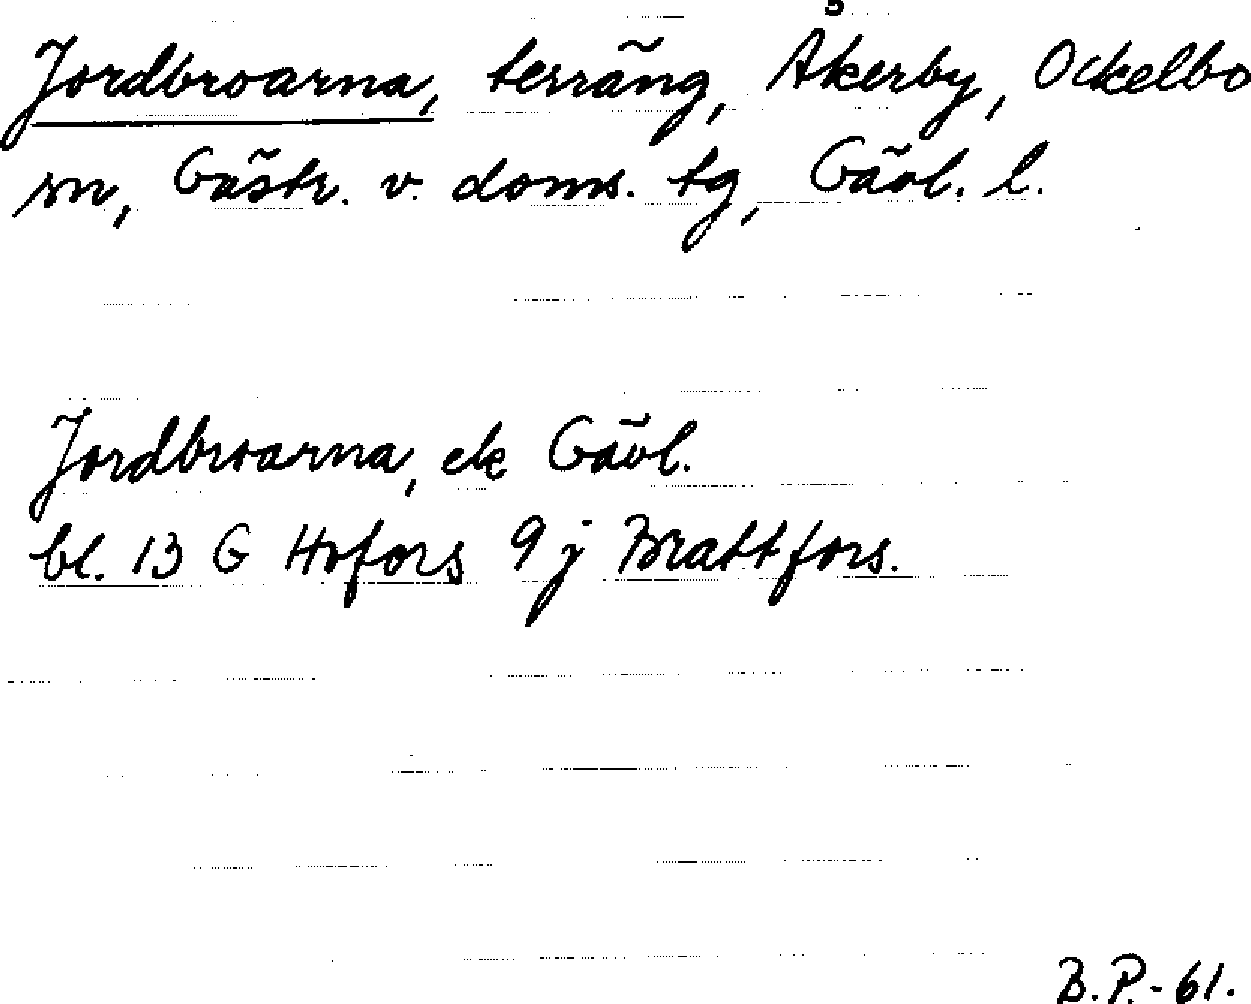 Jordbroarna, terräng, Åkerby, Ockelbo
sn, Gästr. v. doms. tg, Gävl. l.
Jordbroarna, ek Gävl.
bl. 13 G Hofors 9 j Brattfors.
B.P-61.